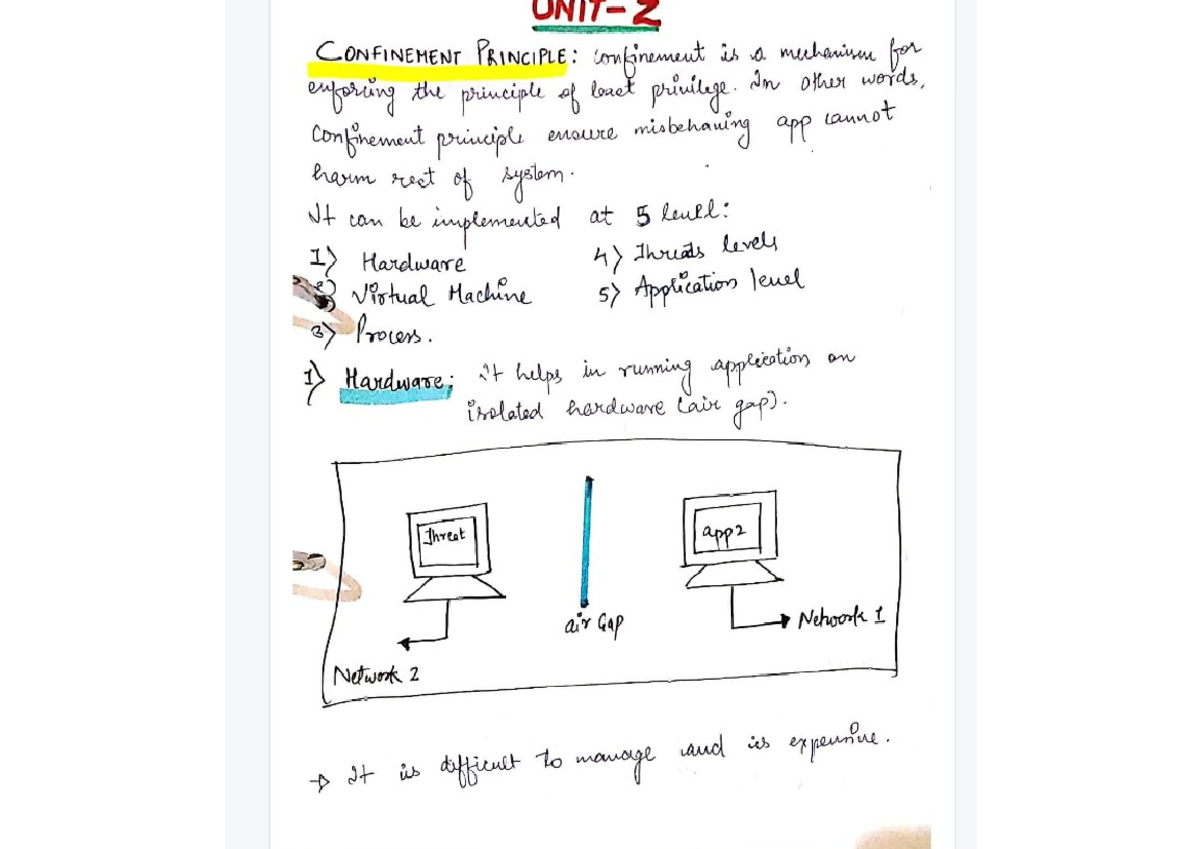 UNIT-2
CONFINEMENT PRINCIPLE: Confinement is a mechanism for
enforcing the principle of least privilege. In other words,
Confinement principle ensure misbehaving app cannot
harm rest of system.
It can be implemented at 5 level:
1) Hardware 4) Threads levels
2) Virtual Machine 5) Application level
3) Process.
1) Hardware: It helps in running application on
isolated hardware (air gap).
Threat app2
air Gap Network 1
Network 2
→ It is difficult to manage and is expensive.